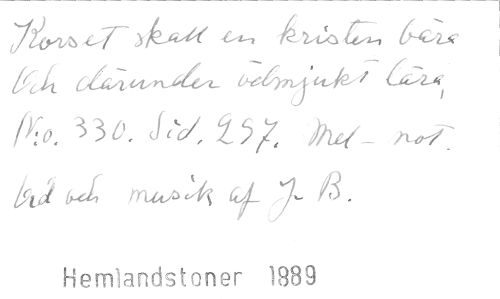 Korset skall en kristen bära
Och därunder ödmjukt lära,
N:o. 330. Sid. 257. Mel-not.
Ord och musik af J. B.
Hemlandstoner 1889